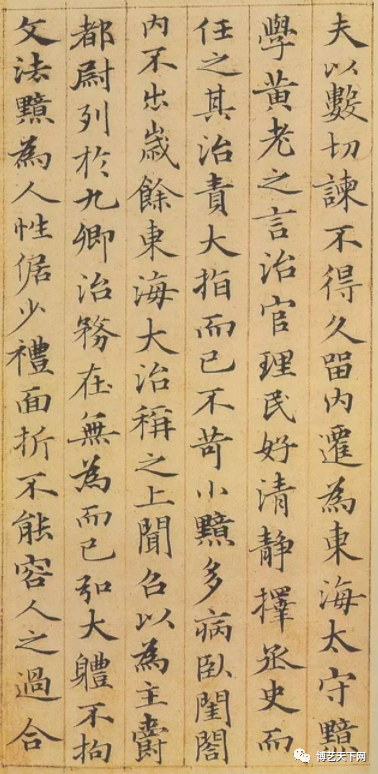 夫以數切諫不得久留內遷為東海太守黯
學黃老之言治官理民好清靜擇丞史而
任之其治責大指而已不苛小黯多病臥閨閤
內不出歲餘東海大治稱之上聞召以為主爵
都尉列於九卿治務在無為而已弘大軆不拘
文法黯為人性倨少禮面折不能容人之過合
博艺天下网